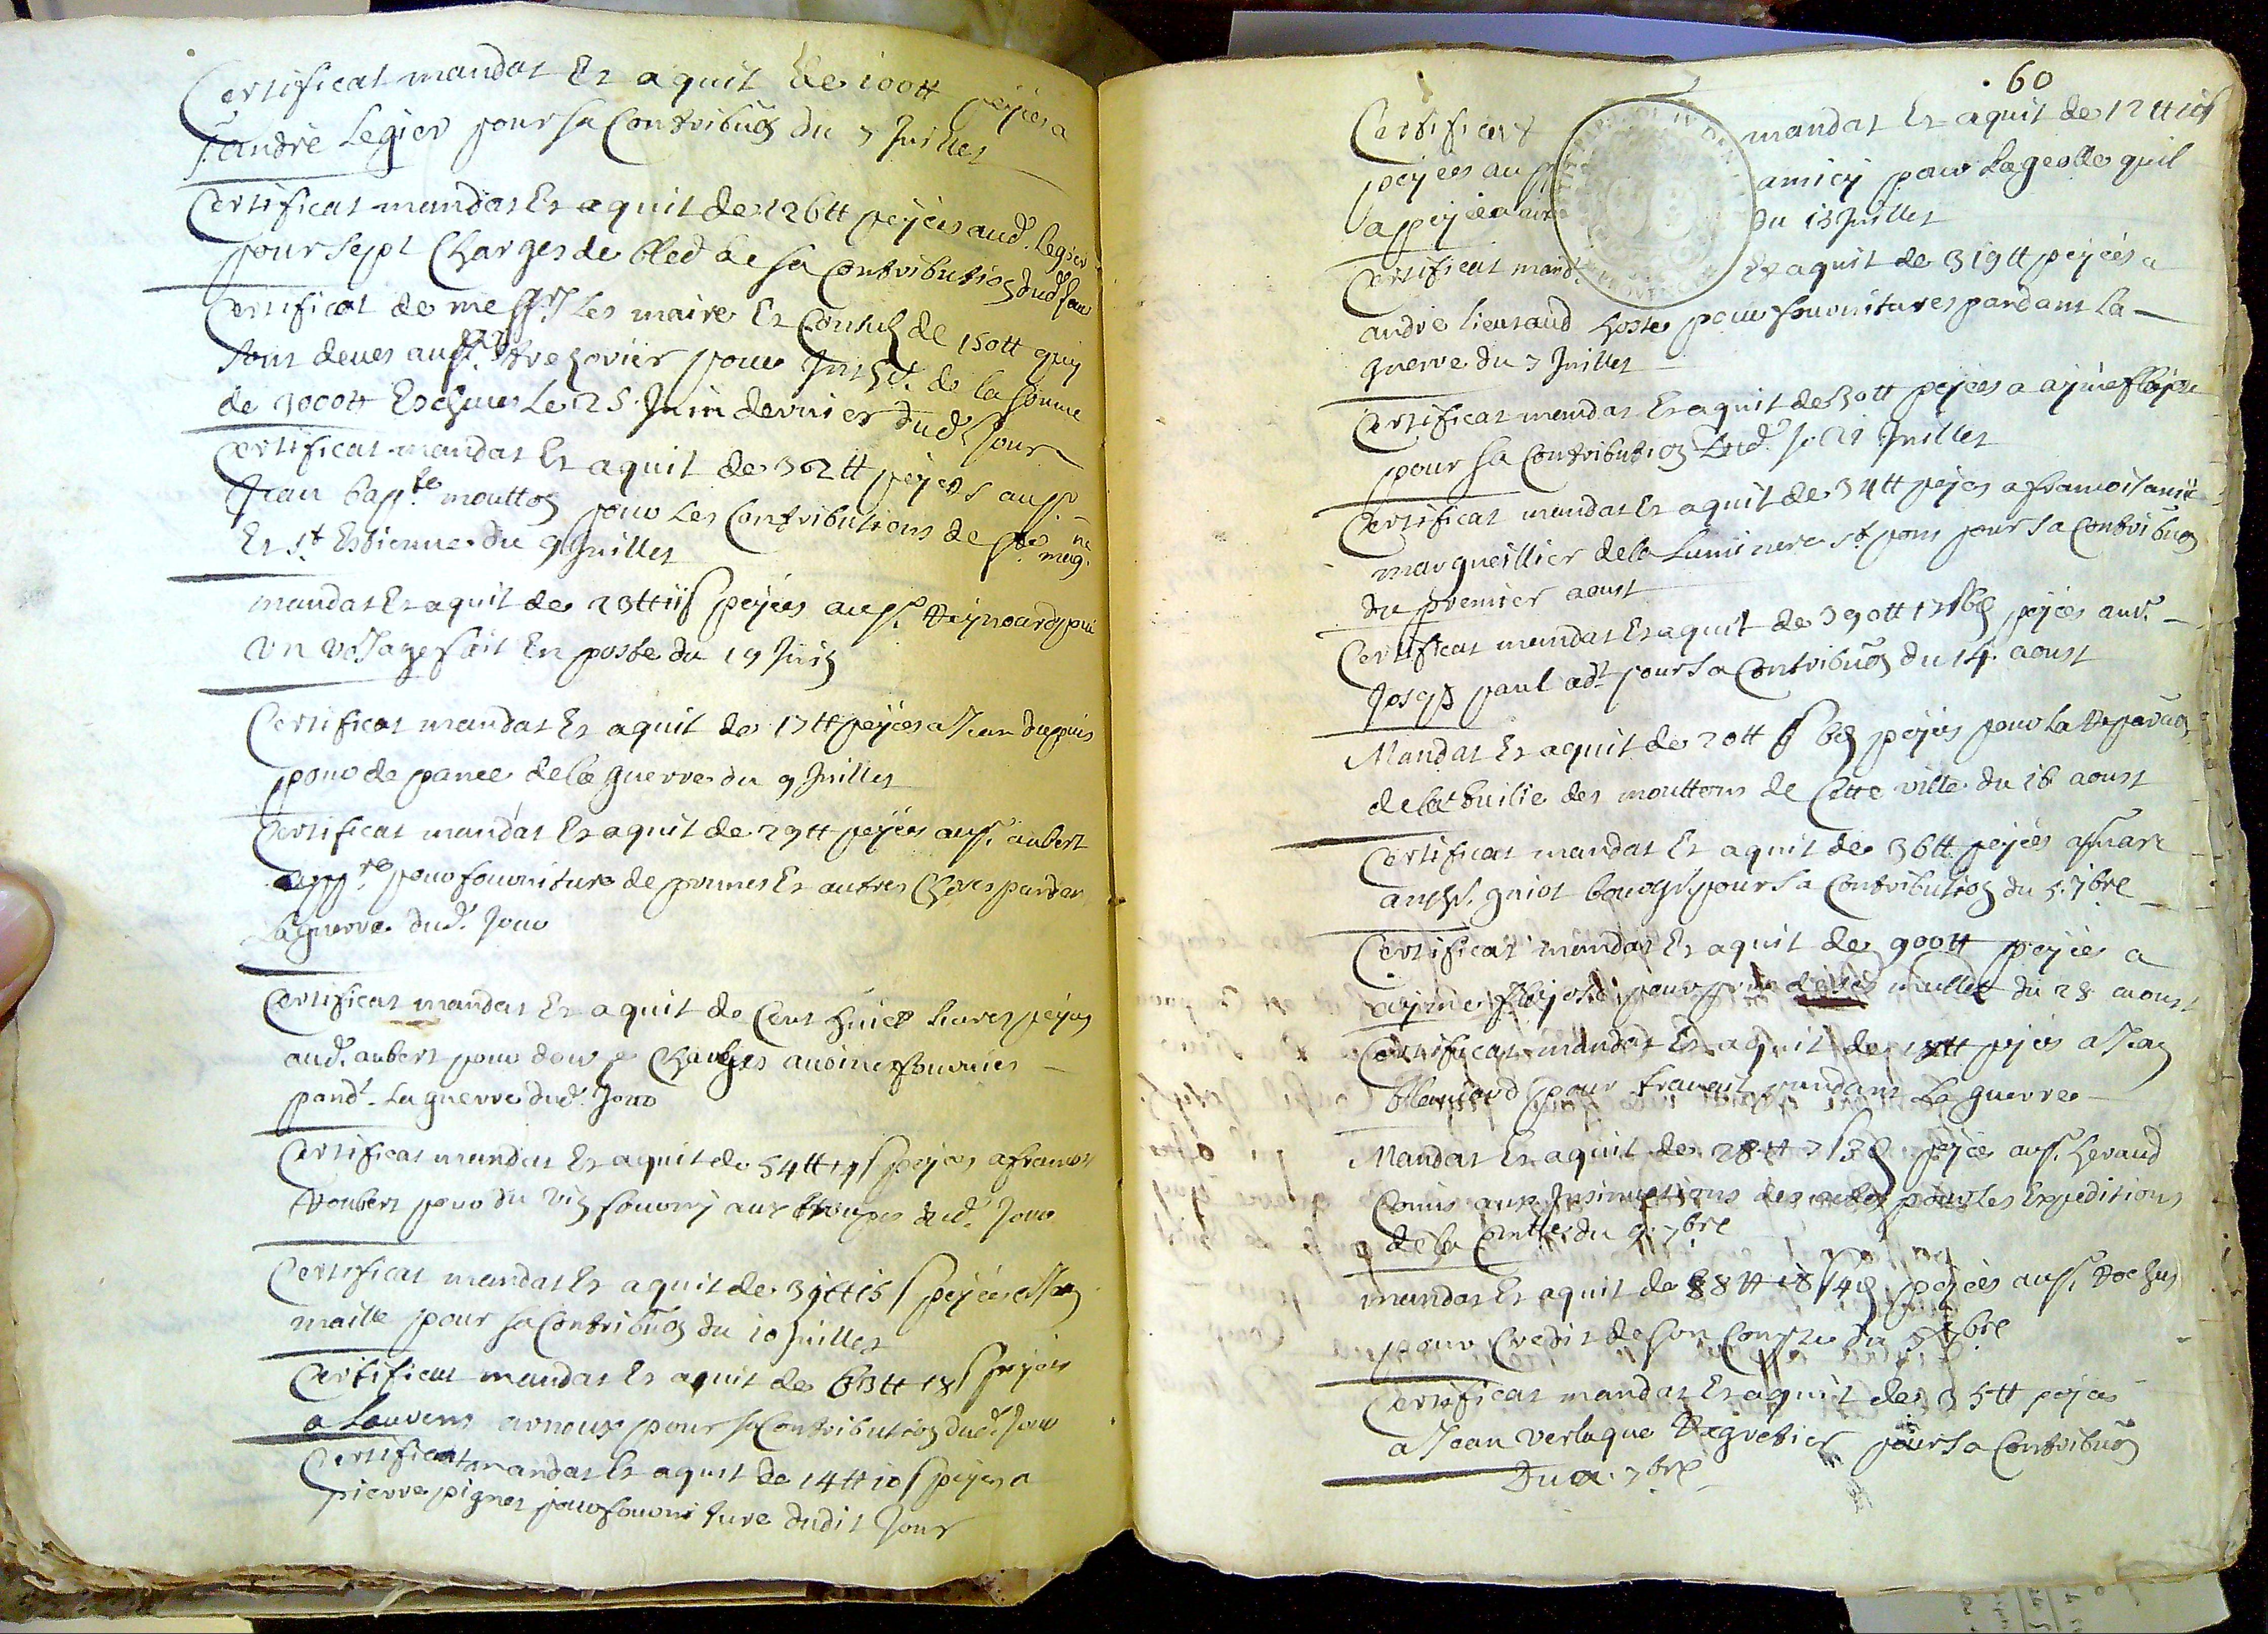 Certificat mandat Et aquit de 100tt peyées a
s.r andré Legier pour sa Contribuõn du 7 Juillet
Certificat mandat Et aquit de 126tt peyées aud. Legier
pour sept Charges de bled de sa Contribution dud. Jour
Certificat de messrs Les maire Et Consulz de 150tt quy
sont deues au sr. trezorier pour Int de la somme
de 3000tt Escheus Le 25 Juin dernier dud Jour
Certificat mandat Et aquit de 302tt peyées au sr
Jean bapte. moutton pour Les Contributions de ste. mag.ne
Et st Estienne du 9 Juillet
mandat Et aquit de 23tt ii s peyées au sr. Reynoard pour
un voyage fait En poste du 19 Juin
Certificat mandat Et aquit de 17tt peyées a Jean dupuis
pour de pance de la guerre du 9 Juillet
Certificat mandat Et aquit de 29tt peyées au sr. aubert
appre. pour fourniture de prunes Et autres Choses pandan
La guerre dud. Jour
Certificat mandat Et aquit de Cent huict livres peyées
aud. aubert pour douze Charges avoine fournies
pand.t La guerre dud. Jour
Certificat mandat Et aquit de 54tt 14 s peyées a francois
Roubert pour du vin fourny aux trouppes dud. Jour
Certificat mandat Et aquit de 39tt 15 s peyées a
maille pour sa Contribuõn du 10 Juillet
Certificat mandat Et aquit de 63tt 18 s peyées
a Laurens arnoux pour sa Contribution dud. Jour
Certificat mandat Et aquit de 14tt 10 s peyées a
pierre pignet pour fourniture dudit Jour
60
Certificat mandat Et aquit de 12tt
peyées au sr amicy pour La geolle quil
a peyée du 13 Juillet
Certificat mand. Et aquit de 319tt peyées a
andré lieutaud hoste pour fournitures pandant la
guerre du 7 Juillet
Certificat mandat Et aquit de 30tt peyées a ayme flayose
pour sa Contribution dud. 21 Juillet
Certificat mandat Et aquit de 34tt peyées a francois amic
marguillier de la Luminere st pons pour sa Contribuõn
du premier aoust
Certificat mandat Et aquit de 390tt 17 s 6d peyées au sr.
Joseph paul adt pour sa Contribuõn du 14 aoust
Mandat Et aquit de 20tt s 6d peyées pour la Reparaõn
de la des mouttons de Cette ville du 16 aoust
Certificat mandat Et aquit de 36tt peyées a marc
anth. guiot bourgs. pour sa Contribution du 5. 7bre
Certificat mandat Et aquit de 900tt peyées a
ayme flayose pour prix de ses mullet du 28 aoust
Certificat mandat Et aquit de 18tt peyées a Jean
blancard pour travail pandant La guerre
Mandat Et aquit de 28tt 7 s 3d peyées au sr. heraud
Comis aux Insinuations des actes pour les Expeditions
de la Comté. du 9. 7bre
mandat Et aquit de 88tt 18 s 4d peyées au sr. Rochus
pour Credit de son Compte du 7bre
Certificat mandat Et aquit de 35tt peyées
a Jean verlaque pour sa Contribuõn
Du 7bre